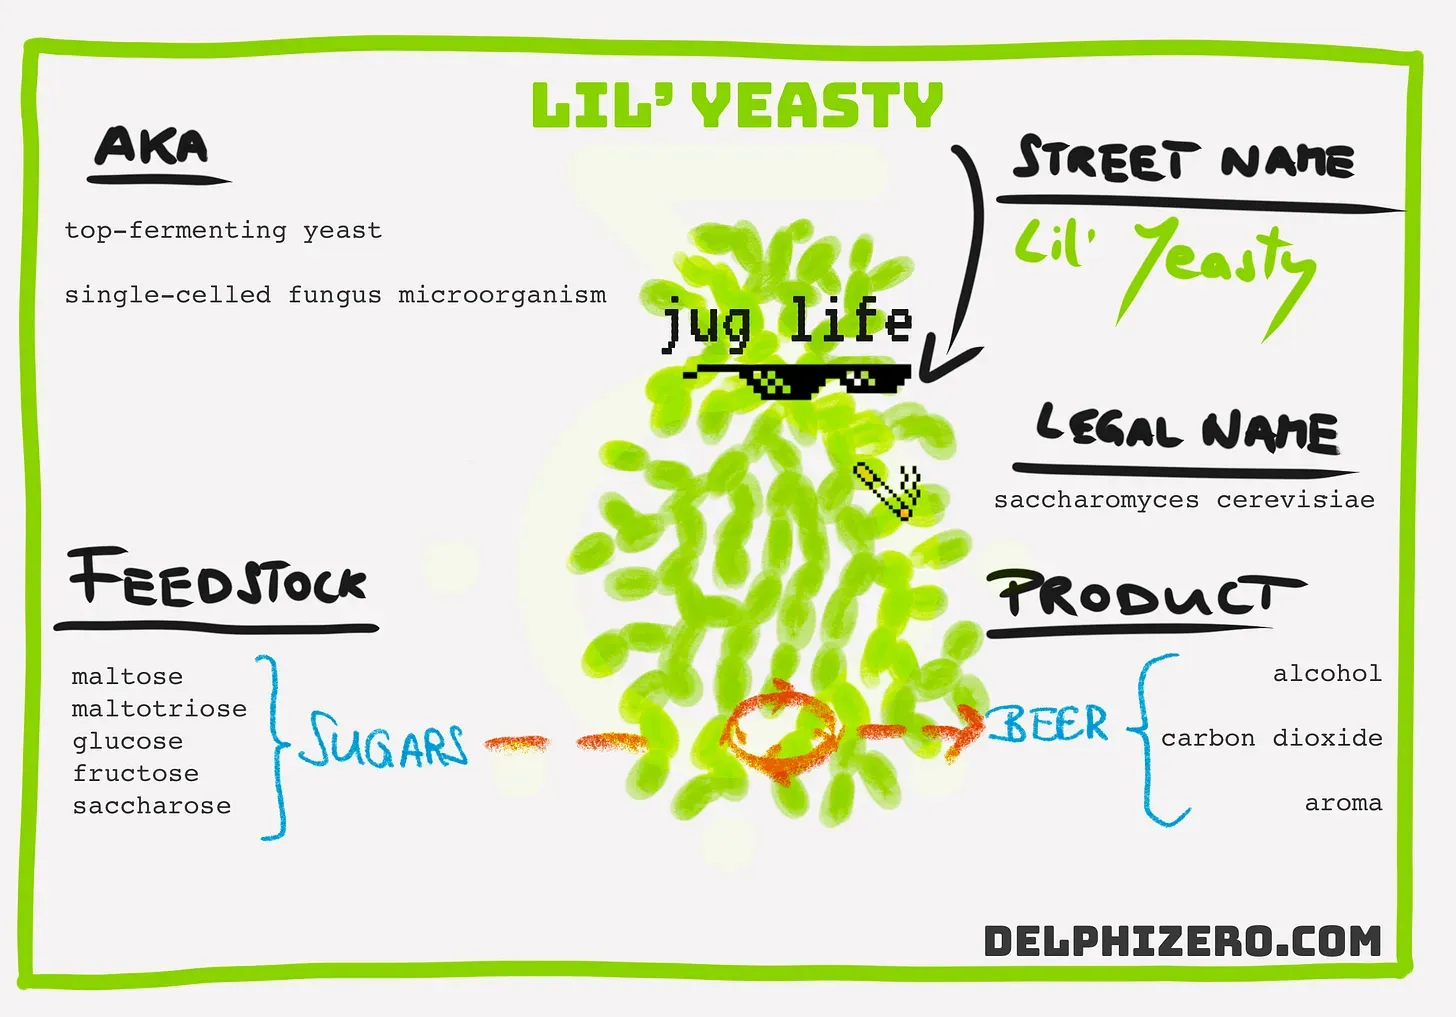 LIL' YEASTY
AKA
top-fermenting yeast
single-celled fungus microorganism
jug life
STREET NAME
Lil' Yeasty
LEGAL NAME
saccharomyces cerevisiae
FEEDSTOCK
maltose
maltotriose
glucose
fructose
saccharose
SUGARS
PRODUCT
BEER
alcohol
carbon dioxide
aroma
DELPHIZERO.COM